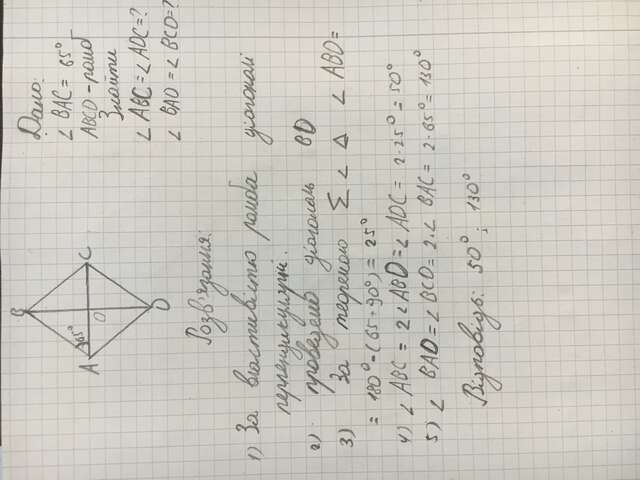 Дано:
∠ BAC = 65°
ABCD - ромб
Знайти
∠ ABC = ∠ ADC = ?
∠ BAD = ∠ BCD = ?
B
A
65°
O
C
D
Розв'язання:
1) За властивістю ромба діагоналі
перпендикулярні.
2) проведено діагональ BD
3) За теоремою Σ ∠ Δ ∠ ABO =
= 180° - (65 + 90°) = 25°
4) ∠ ABC = 2∠ABD = ∠ ADC = 2·25° = 50°
5) ∠ BAD = ∠ BCD = 2·∠ BAC = 2·65° = 130°
Відповідь: 50° ; 130°